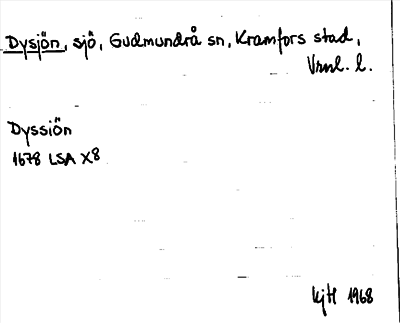 Dysjön, sjö, Gudmundrå sn, Kramfors stad,
Vrnl. l.
Dyssiön
1678 LSA X8
kjH 1968